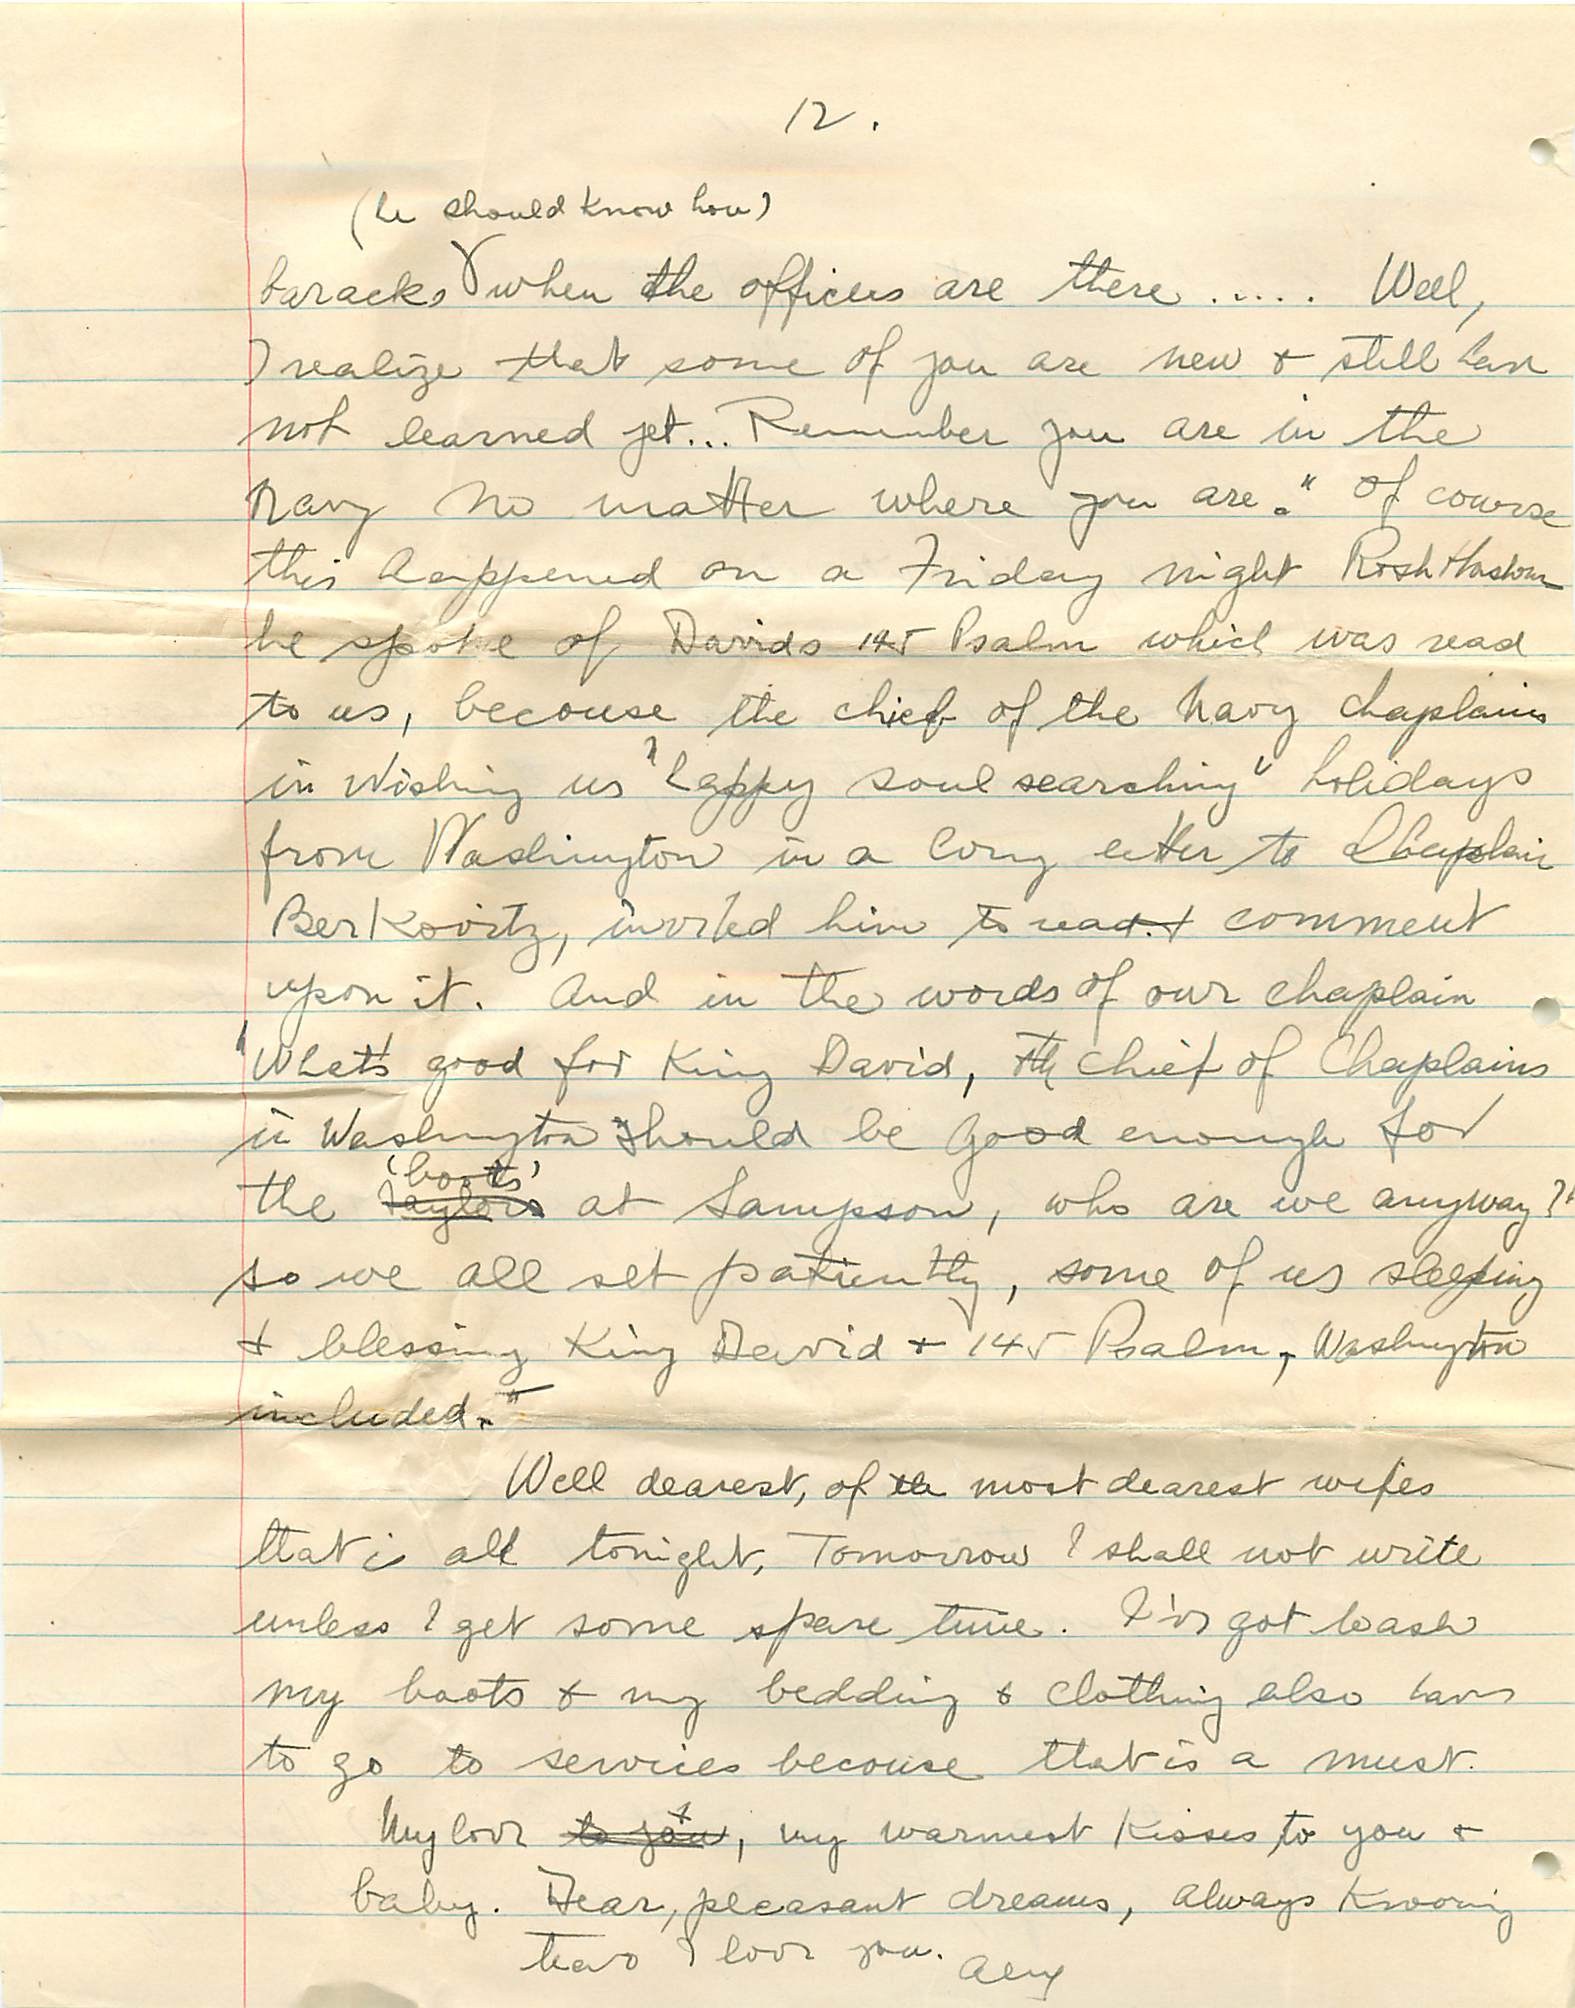 12.
(he should know how)
baracks when the officers are there ..... Well,
I realize that some of you are new & still have
not learned yet... Remember you are in the
Navy no matter where you are." Of course
this happened on a Friday night Rosh Hashom
he spoke of Davids 145 Psalm which was read
to us, becouse the chief of the Navy chaplains
in wishing us "happy soul searching" holidays
from Washington in a long letter to Chaplain
Berkovitz, invited him to read & comment
upon it. And in the words of our chaplain
"What's good for King David, the chief of Chaplains
in Washington should be good enough for
'boots'
the at Sampson, who are we anyway?"
so we all set patiently, some of us sleeping
& blessing King David & 145 Psalm, Washington
included."
Well dearest, of the most dearest wifes
that is all tonight, Tomorrow I shall not write
unless I get some spare time. I've got wash
my boots & my bedding & clothing also have
to go to services becouse that is a must.
My love to you, my warmest kisses to you &
baby. Dear, pleasant dreams, always knowing
I love you.